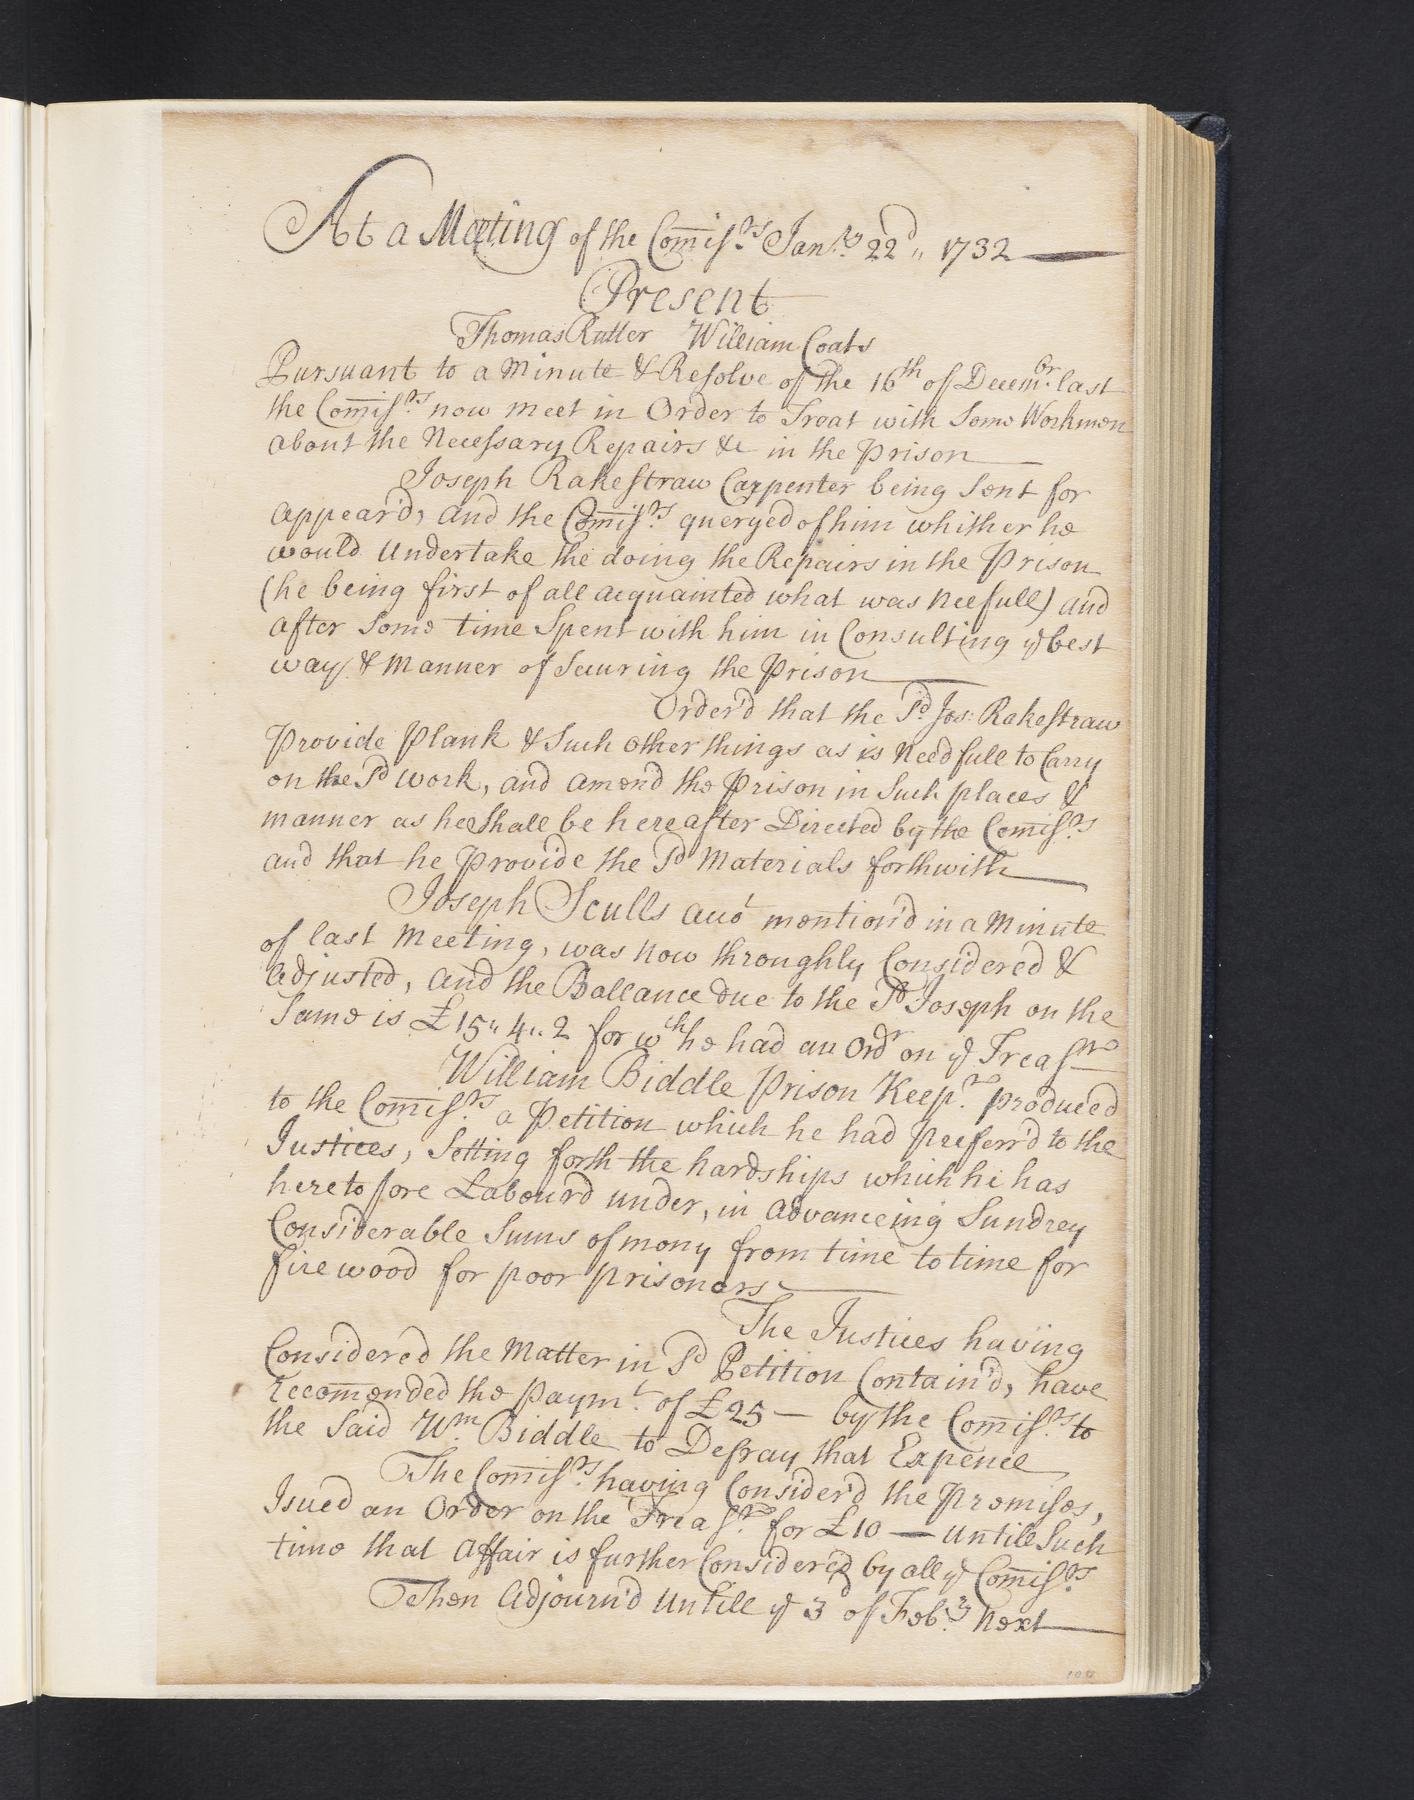 At a Meeting of the Comiſ.rs Jan.ry 22d,, 1732
Present
Thomas Rutter William Coats
Pursuant to a Minute & Reſolve of the 16th of Decem.br last
the Comiſ.rs now meet in Order to Treat with Some Workmen
about the Neceſsary Repairs &c in the Prison
Joseph Rakeſtraw Carpenter being Sent for
appear'd, and the Comiſ.rs queryed of him whither he
would Undertake the doing the Repairs in the Prison
(he being first of all acquainted what was Neefull) and
after Some time Spent with him in Consulting ye best
way & Manner of Securing the Prison
Order'd that the Sd. Jos: Rakeſtraw
Provide Plank & Such other things as is Needfull to Carry
on the Sd work, and amend the Prison in Such places &
manner as hee Shall be hereafter Directed by the Comiſ.rs
and that he Provide the Sd Materials forthwith
Joseph Sculls acot mention'd in a Minute
of last Meeting, was Now throughly Considered &
adjusted, and the Ballance due to the Sd Joseph on the
Same is £15,, 4,, 2 for wch he had an Ordr on ye Treaſ.ro
William Biddle Prison Keep.r produced
to the Comiſ.rs a Petition which he had Preferr'd to the
Justices, Setting forth the hardships which he has
heretofore Labour'd under, in advanceing Sundrey
Considerable Sums of mony from time to time for
fire wood for poor prisoners
The Justices having
Considered the Matter in Sd Petition Contain'd, have
reccomended the Paym.t of £25 — by the Comiſ.rs to
the Said Wm. Biddle to Defray that Expence
The Comiſ.rs having Consider'd the Premiſes,
Isued an Order on the Treaſ.ro for £10 — untill Such
time that affair is further Consider'd by all ye Comiſ.rs
Then Adjourn'd Untill ye 3d of Feb.ry Next
100